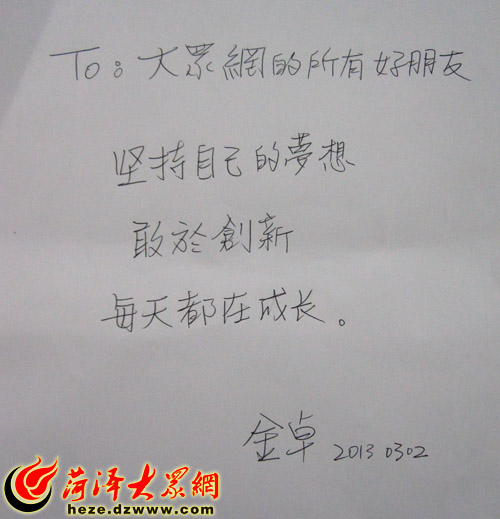 To：大眾網的所有好朋友
坚持自己的夢想
敢於創新
每天都在成长。
金卓 2013 0302
菏泽大眾網
heze.dzwww.com